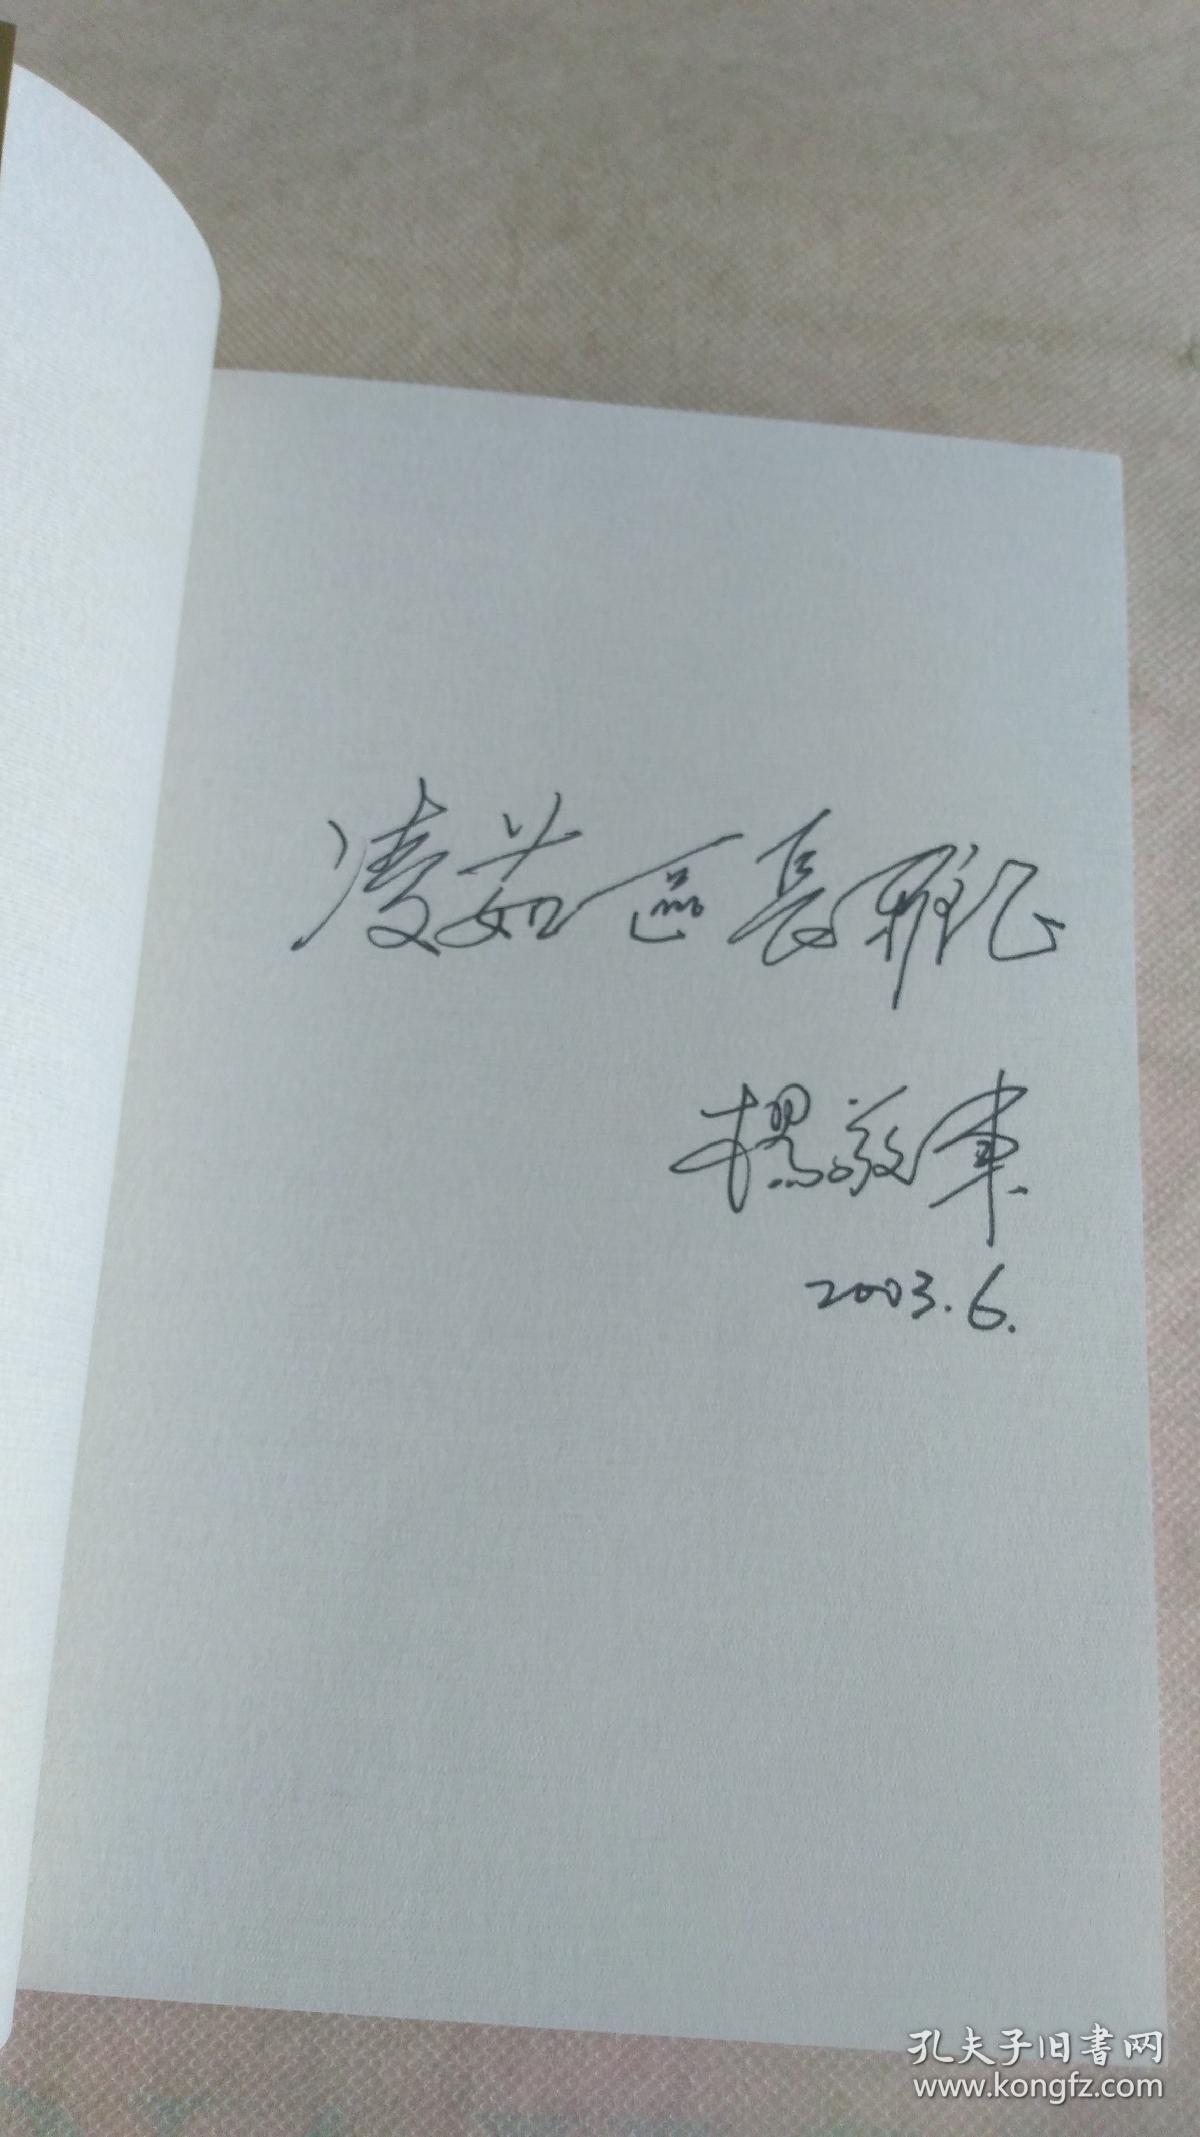 凌茹區長雅正
楊敬軍
2003.6.
孔夫子旧書网
www.kongfz.com